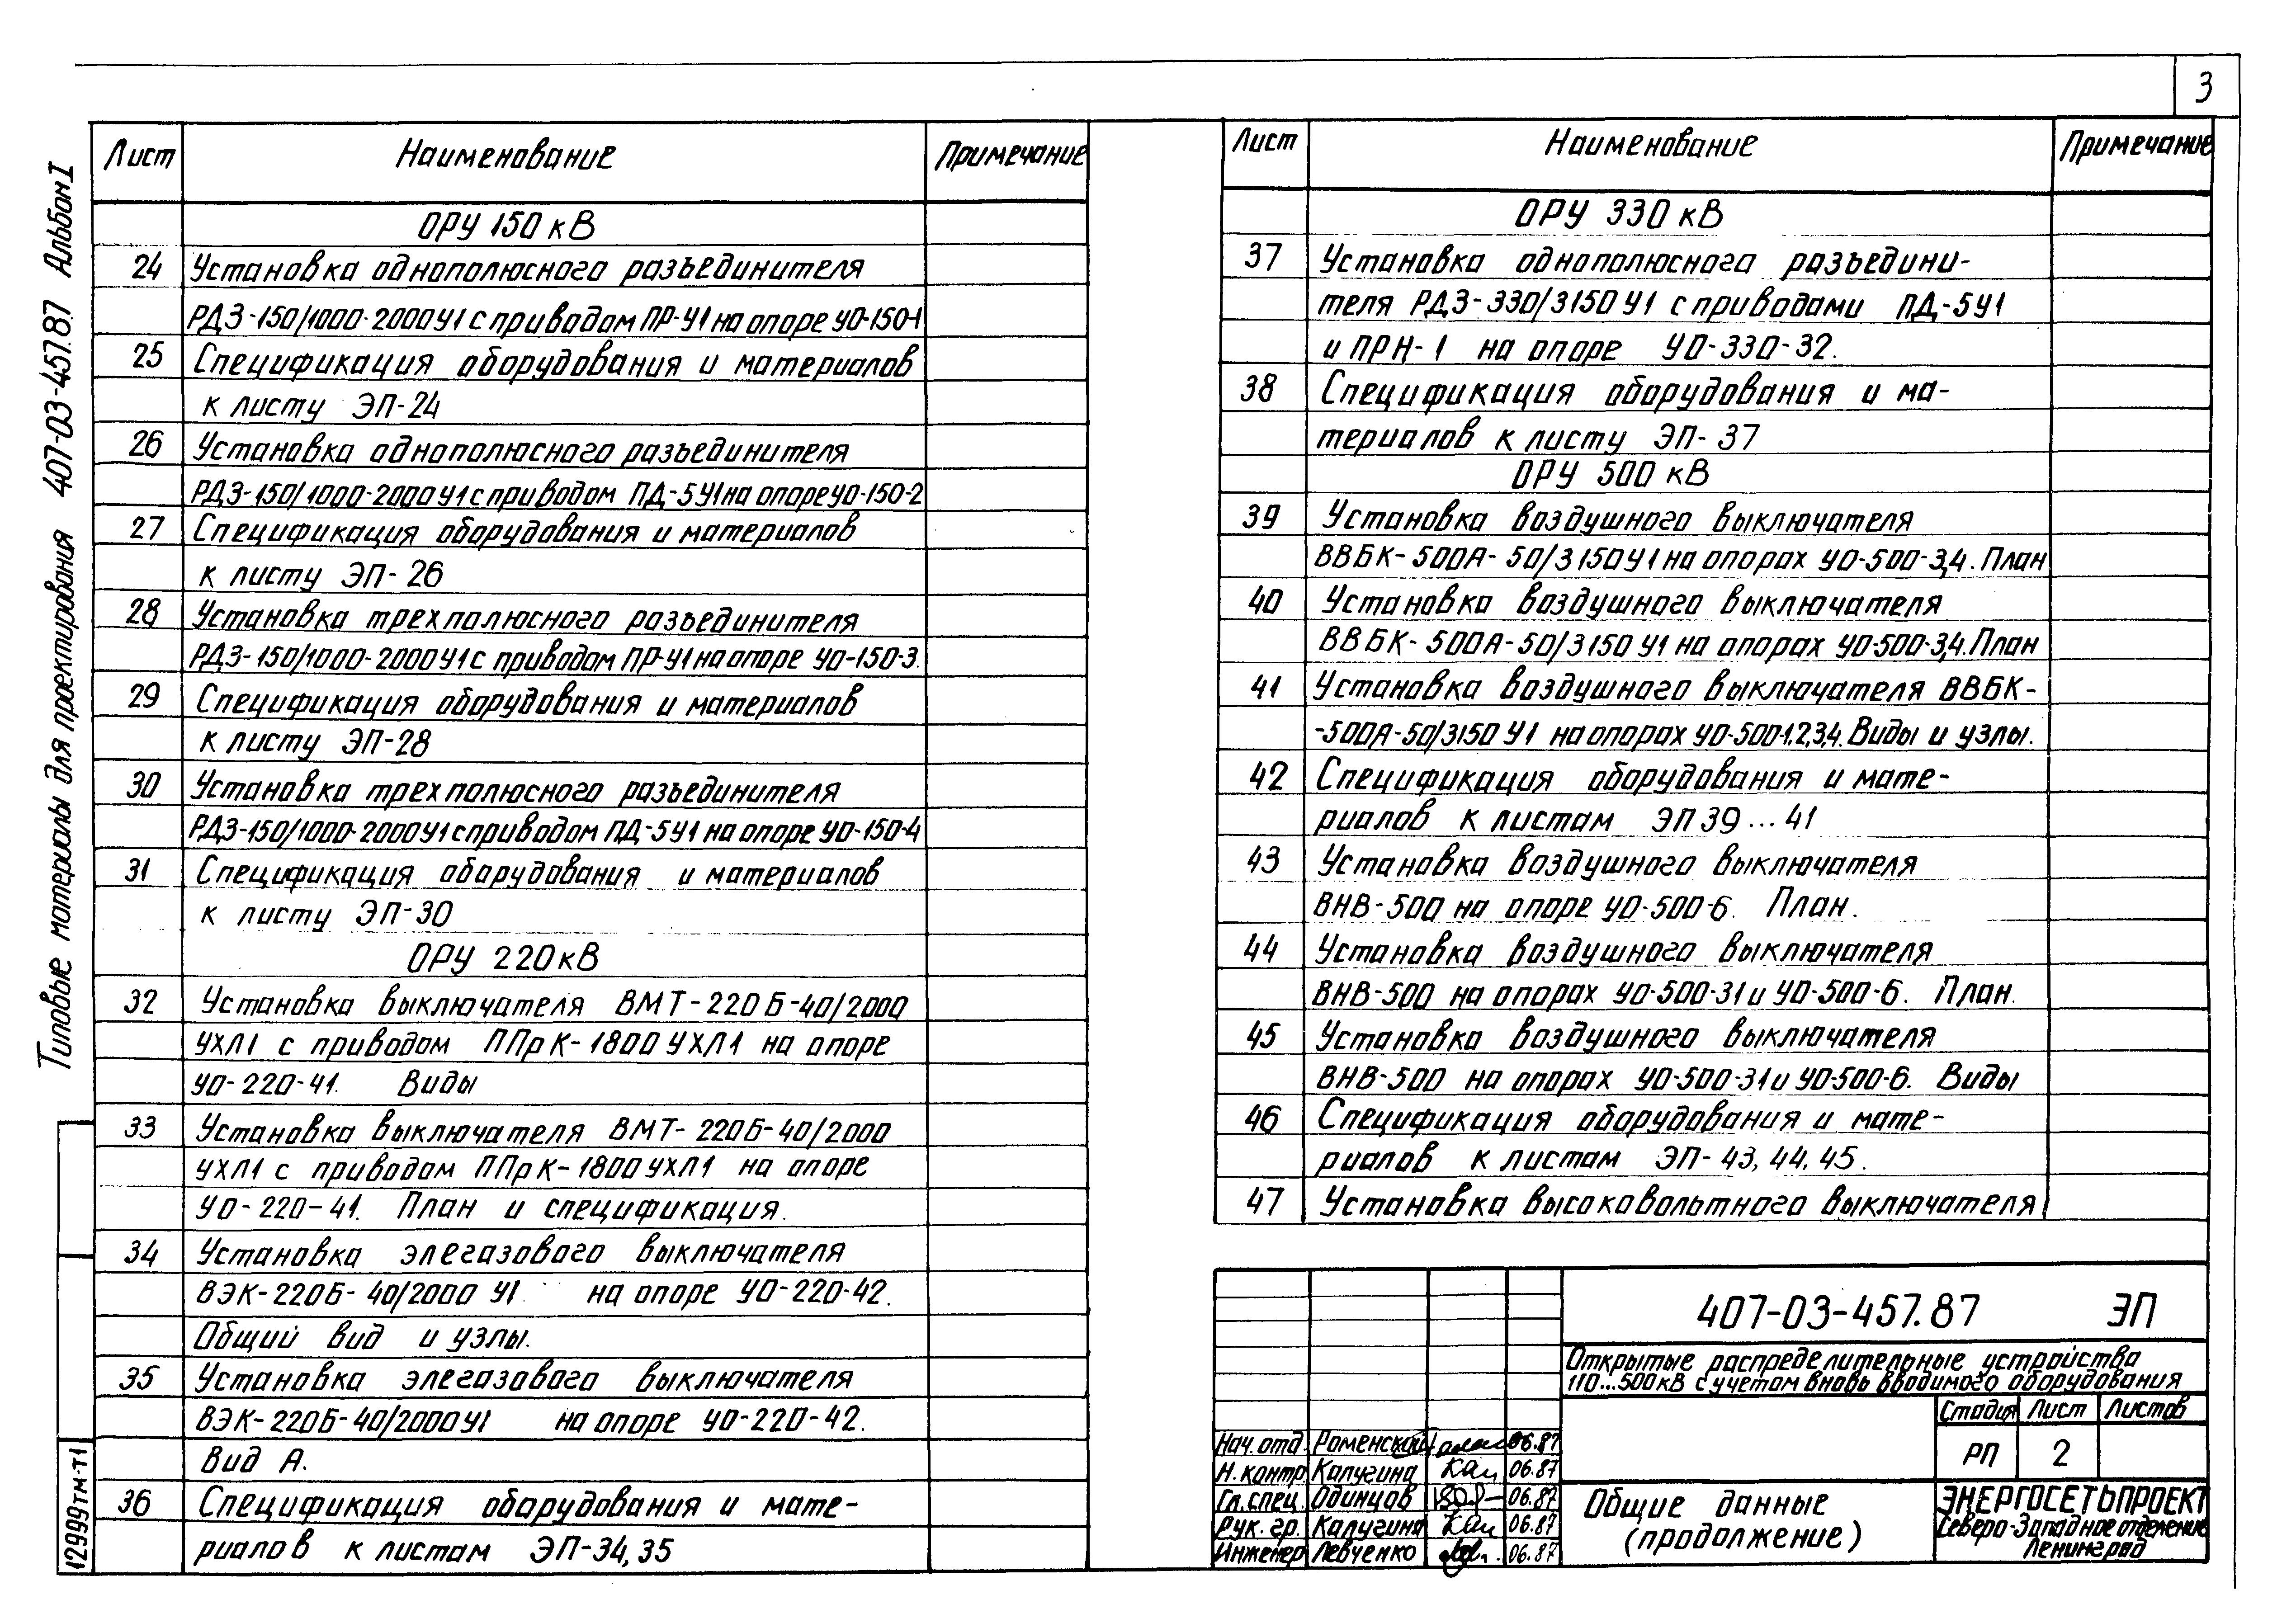 3
Типовые материалы для проектирования 407-03-457.87 Альбом I
12999тм-т1
Лист Наименование Примечание
ОРУ 150 кВ
24 Установка однополюсного разъединителя
РДЗ-150/1000-2000У1 с приводом ПР-У1 на опоре УО-150-1
25 Спецификация оборудования и материалов
к листу ЭП-24
26 Установка однополюсного разъединителя
РДЗ-150/1000-2000У1 с приводом ПД-5У1 на опоре УО-150-2
27 Спецификация оборудования и материалов
к листу ЭП-26
28 Установка трехполюсного разъединителя
РДЗ-150/1000-2000У1 с приводом ПР-У1 на опоре УО-150-3.
29 Спецификация оборудования и материалов
к листу ЭП-28
30 Установка трехполюсного разъединителя
РДЗ-150/1000-2000У1 с приводом ПД-5У1 на опоре УО-150-4
31 Спецификация оборудования и материалов
к листу ЭП-30
ОРУ 220 кВ
32 Установка выключателя ВМТ-220Б-40/2000
УХЛ1 с приводом ППрК-1800УХЛ1 на опоре
УО-220-41. Виды
33 Установка выключателя ВМТ-220Б-40/2000
УХЛ1 с приводом ППрК-1800УХЛ1 на опоре
УО-220-41. План и спецификация.
34 Установка элегазового выключателя
ВЭК-220Б-40/2000 У1. на опоре УО-220-42.
Общий вид и узлы.
35 Установка элегазового выключателя
ВЭК-220Б-40/2000У1 на опоре УО-220-42.
Вид А.
36 Спецификация оборудования и мате-
риалов к листам ЭП-34,35
Лист Наименование Примечание
ОРУ 330 кВ
37 Установка однополюсного разъедини-
теля РДЗ-330/3150 У1 с приводами ПД-5У1
и ПРН-1 на опоре УО-330-32.
38 Спецификация оборудования и ма-
териалов к листу ЭП-37
ОРУ 500 кВ
39 Установка воздушного выключателя
ВВБК-500А-50/3150У1 на опорах УО-500-3,4. План
40 Установка воздушного выключателя
ВВБК-500А-50/3150 У1 на опорах УО-500-3,4. План
41 Установка воздушного выключателя ВВБК-
-500А-50/3150 У1 на опорах УО-500-1,2,3,4. Виды и узлы.
42 Спецификация оборудования и мате-
риалов к листам ЭП 39...41
43 Установка воздушного выключателя
ВНВ-500 на опоре УО-500-6. План.
44 Установка воздушного выключателя
ВНВ-500 на опорах УО-500-31 и УО-500-6. План.
45 Установка воздушного выключателя
ВНВ-500 на опорах УО-500-31 и УО-500-6. Виды
46 Спецификация оборудования и мате-
риалов к листам ЭП-43,44,45.
47 Установка высоковольтного выключателя
407-03-457.87 ЭП
Открытые распределительные устройства
110...500кВ с учетом вновь вводимого оборудования
Стадия Лист Листов
РП 2
Нач. отд. Роменский 06.87
Н. контр. Калугина 06.87
Гл. спец. Одинцов 06.87
Рук. гр. Калугина 06.87
Инженер Левченко 06.87
Общие данные
(продолжение)
ЭНЕРГОСЕТЬПРОЕКТ
Северо-Западное отделение
Ленинград